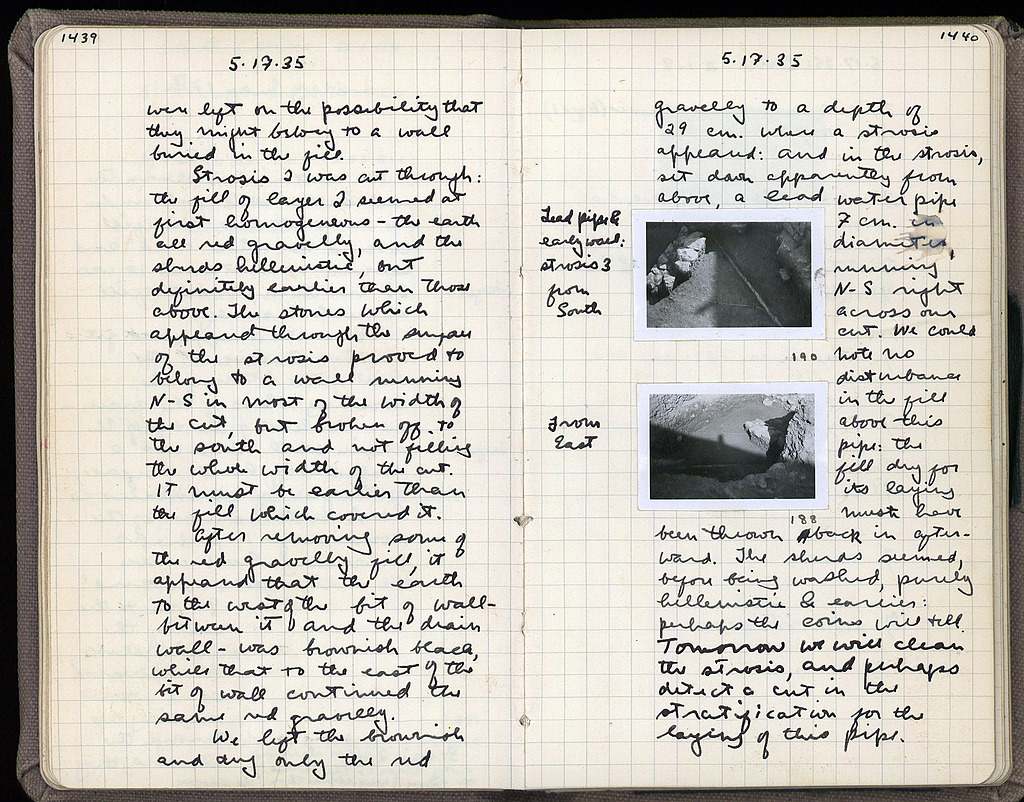 1439
5.17.35
were left on the possibility that
they might belong to a wall
buried in the fill.
Strosis 2 was cut through:
the fill of layer 2 seemed at
first homogeneous - the earth
all red gravelly, and the
sherds hellenistic, but
definitely earlier than those
above. The stones which
appeared through the surface
of the strosis proved to
belong to a wall running
N-S in most of the width of
the cut, but broken off to
the south and not filling
the whole width of the cut.
It must be earlier than
the fill which covered it.
After removing some of
the red gravelly fill, it
appeared that the earth
to the west of the bit of wall-
between it and the drain
wall - was brownish black,
while that to the east of the
bit of wall continued the
same red gravelly.
We left the brownish
and dug only the red
1440
5.17.35
gravelly to a depth of
29 cm. where a strosis
appeared: and in the strosis,
set down apparently from
above, a lead water pipe
7 cm. in
diameter,
running
N-S right
across our
cut. We could
note no
disturbance
in the fill
above this
pipe: the
fill dug for
its laying
must have
been thrown back in after-
ward. The sherds seemed,
before being washed, purely
hellenistic & earlier:
perhaps the coins will tell.
Tomorrow we will clean
the strosis, and perhaps
detect a cut in the
stratification for the
laying of this pipe.
Lead pipe &
early wall:
strosis 3
from
South
190
From
East
188